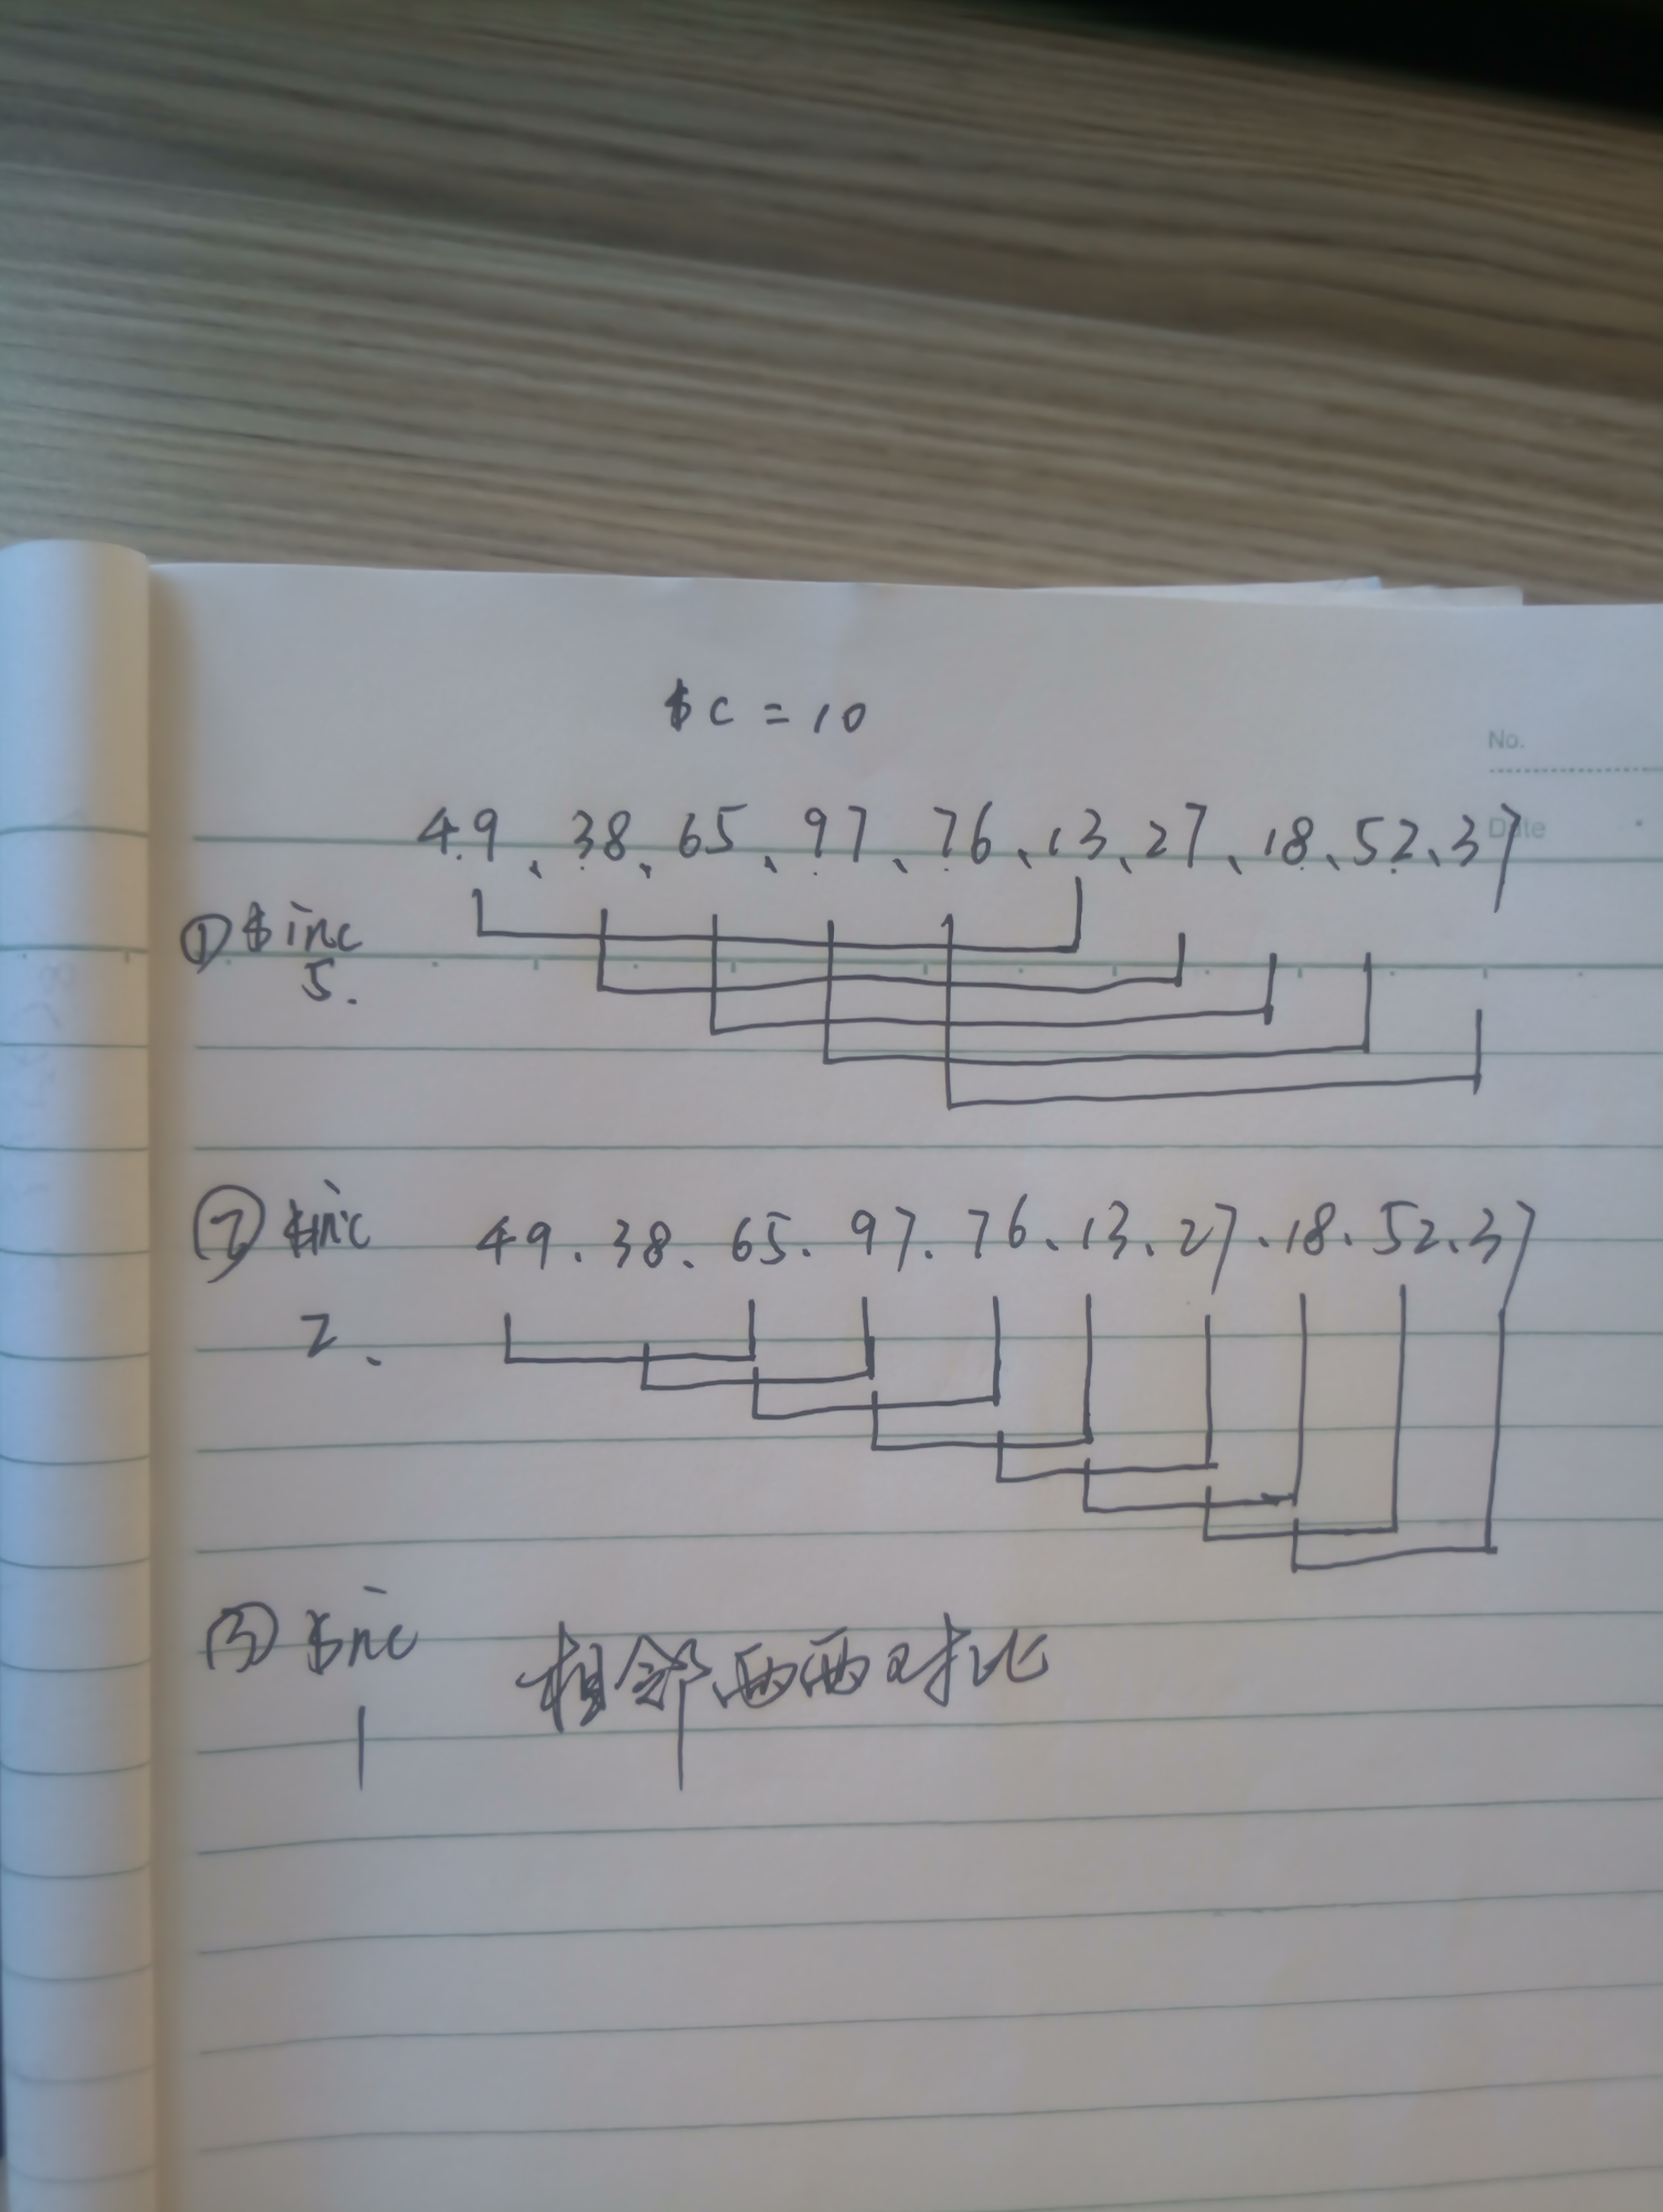 $c = 10
No.
Date
49、38、65、97、76、13、27、18、52、37
① $inc
5.
② $inc 49、38、65、97、76、13、27、18、52、37
2、
③ $inc 相邻两两对比
1